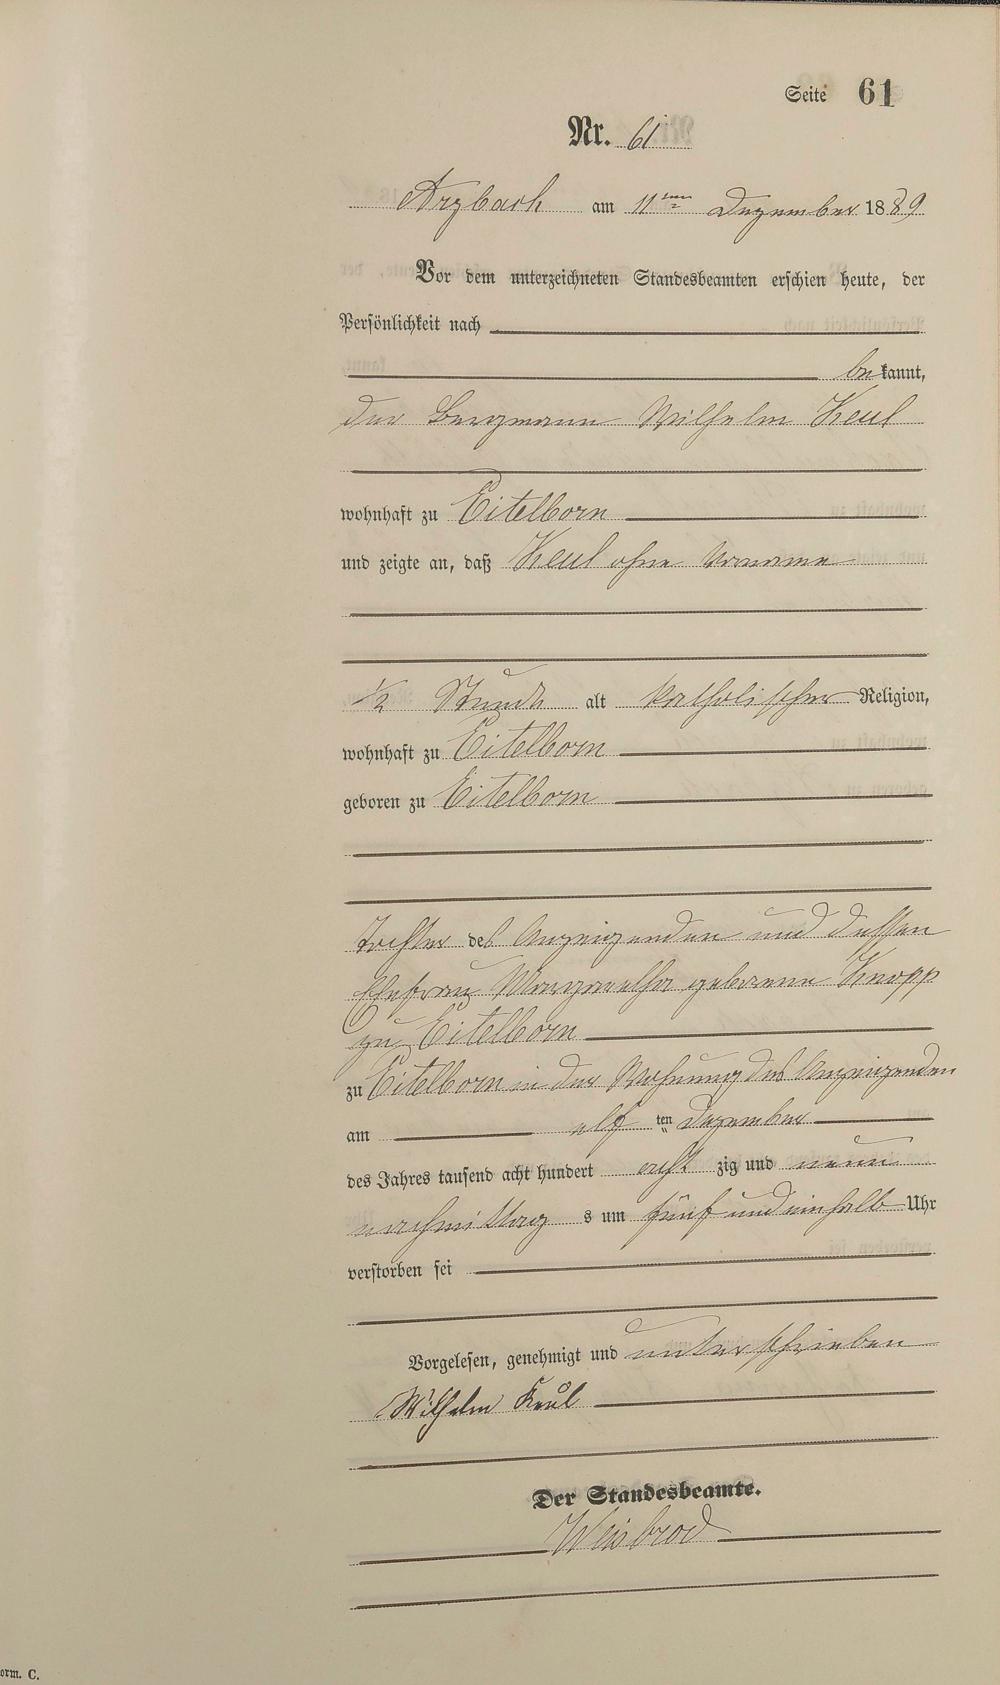 Seite 61
Nr. 61
Arzbach am 11ten Dezember 1889
Vor dem unterzeichneten Standesbeamten erschien heute, der
Persönlichkeit nach
bekannt,
der Bergmann Wilhelm Keul
wohnhaft zu Eitelborn
und zeigte an, daß Keul ohne Vorname
1/2 Stunde alt katholischer Religion,
wohnhaft zu Eitelborn
geboren zu Eitelborn
Tochter des Anzeigenden und dessen
Ehefrau Margaretha geborene Knopp
zu Eitelborn
zu Eitelborn in der Wohnung des Anzeigenden
am elf ten Dezember
des Jahres tausend acht hundert acht zig und neun
nachmittag s um fünf und einhalb Uhr
verstorben sei
Vorgelesen, genehmigt und unterschrieben
Wilhelm Keul
Der Standesbeamte.
Weisbrod
orm. C.